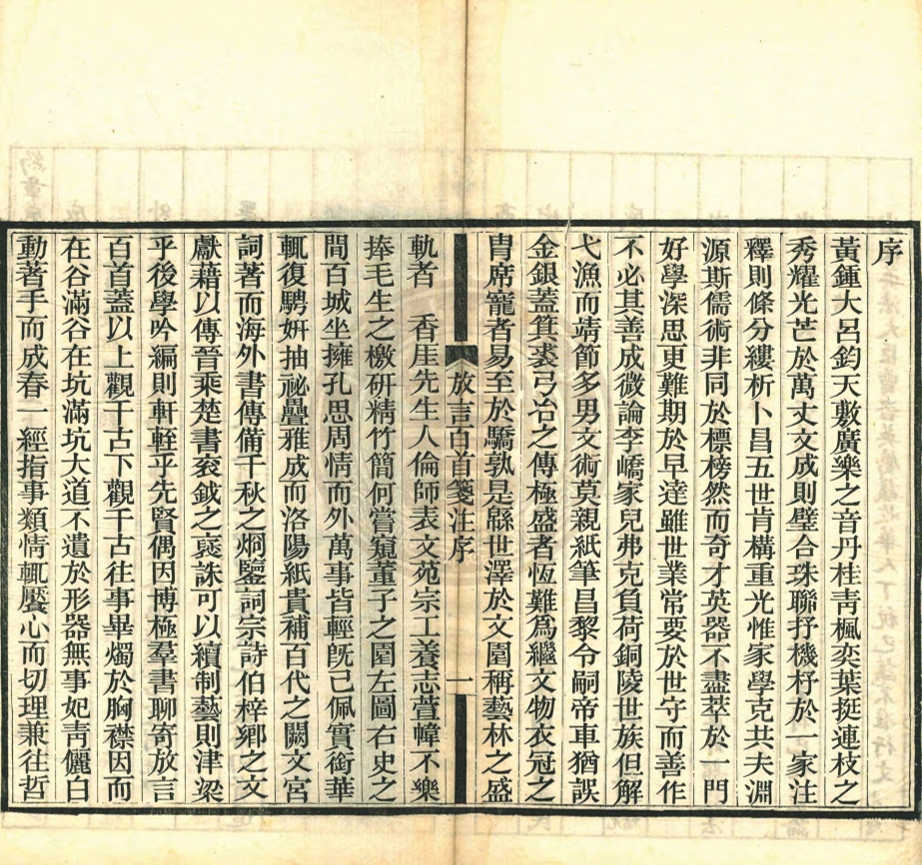 序
黃鍾大呂鈞天敷廣樂之音丹桂青楓奕葉挺連枝之
秀耀光芒於萬丈文成則璧合珠聯抒機杼於一家注
釋則條分縷析卜昌五世肯構重光惟家學克共夫淵
源斯儒術非同於標榜然而奇才英器不盡萃於一門
好學深思更難期於早達雖世業常要於世守而善作
不必其善成微論李嶠家兒弗克負荷銅陵世族但解
弋漁而靖節多男文術莫親紙筆昌黎令嗣帝車猶誤
金銀蓋箕裘弓冶之傳極盛者恆難爲繼文物衣冠之
胄席寵者易至於驕孰是緜世澤於文圃稱藝林之盛
放言百首箋注序
一
軌者　香厓先生人倫師表文苑宗工養志萱幃不樂
捧毛生之檄研精竹簡何嘗窺董子之園左圖右史之
間百城坐擁孔思周情而外萬事皆輕旣已佩實銜華
輒復騁妍抽祕疊雅成而洛陽紙貴補百代之闕文宮
詞著而海外書傳備千秋之烱鑒詞宗詩伯梓鄉之文
獻藉以傳晉乘楚書袞鉞之襃誅可以續制藝則津梁
乎後學吟編則軒輊乎先賢偶因博極羣書聊寄放言
百首蓋以上觀千古下觀千古往事畢燭於胸襟因而
在谷滿谷在坑滿坑大道不遺於形器無事妃靑儷白
動著手而成春一經指事類情輒饜心而切理兼往哲